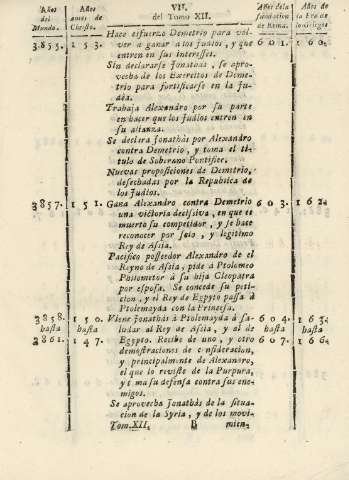 VII.
Años del Mundo.
Años antes de Christo.
del Tomo XII.
Años de la fundacion de Roma.
Años de la Era de
3855. 153. Hace esfuerzo Demetrio para vol- 601. 160
ver à ganar à los Judios, y que
entren en sus intereses.
Sin declararse Jonathás, se apro-
vecha de los Exercitos de Deme-
trio para fortificarse en la Ju-
déa.
Trabaja Alexandro por su parte
en hacer que los Judios entren en
su alianza.
Se declara Jonathás por Alexandro
contra Demetrio, y toma el ti-
tulo de Soberano Pontifice.
Nuevas proposiciones de Demetrio,
desechadas por la Republica de
los Judios.
3857. 151. Gana Alexandro contra Demetrio 603. 162
una victoria decisiva, en que es
muerto su competidor, y se hace
reconocer por solo, y legitimo
Rey de Assia.
Pacifico posseedor Alexandro de el
Reyno de Assia, pide à Ptolemeo
Philometor à su hija Cleopatra
por esposa. Se concede su peti-
cion, y el Rey de Egypto passa à
Ptolemayda con la Princesa.
3858. 150. Viene Jonathás à Ptolemayda à sa- 604. 163
hasta hasta ludar al Rey de Assia, y al de hasta hasta
3861. 147. Egypto. Recibe de uno, y otro 607. 166
demostraciones de consideracion,
y principalmente de Alexandro,
el que lo reviste de la Purpura,
y toma su defensa contra sus ene-
migos.
Se aprovecha Jonathás de la situa-
cion de la Syria, y de los movi-
Tom. XII. B mien-